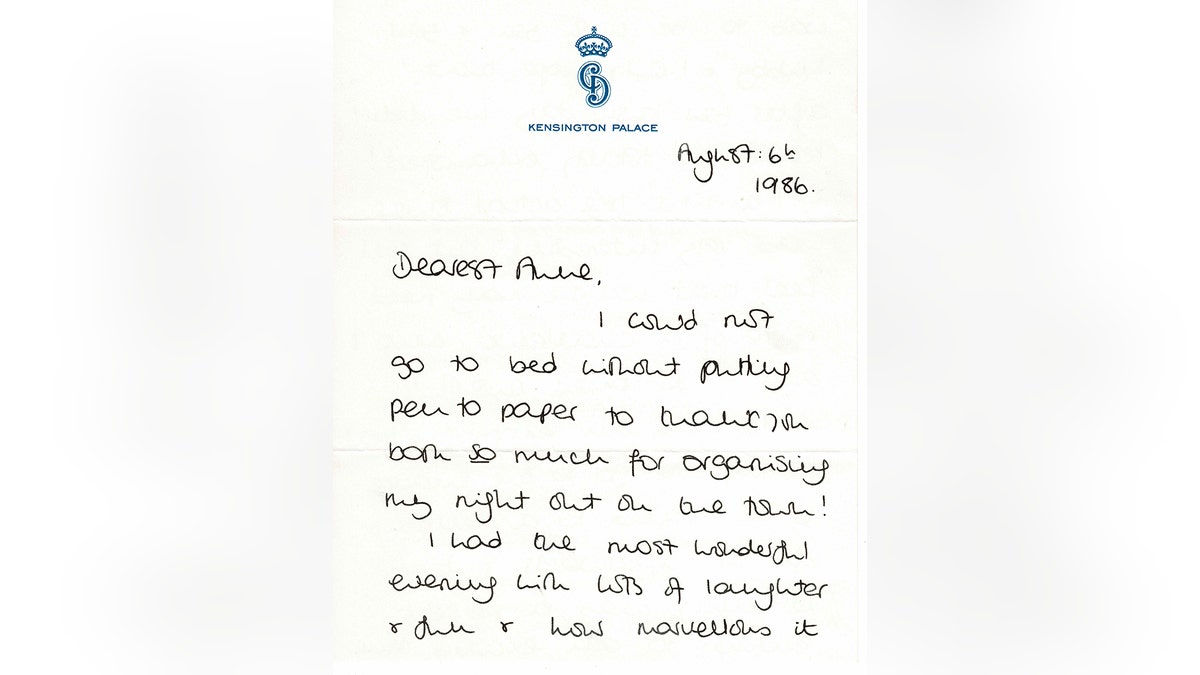 CD
KENSINGTON PALACE
August: 6th
1986.
Dearest Anne,
I could not
go to bed without putting
pen to paper to thank you
both so much for organising
my night out on the town!
I had the most wonderful
evening with lots of laughter
& fun & how marvellous it